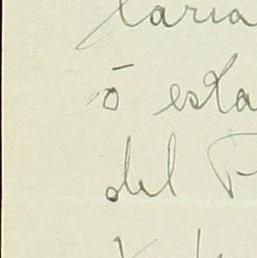 taria
ō esta
del P